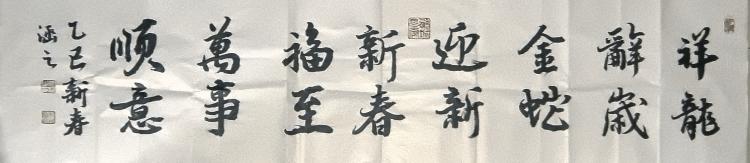 祥龍
辭歲
金蛇
迎新
新春
福至
萬事
順意
乙巳新春
涵之